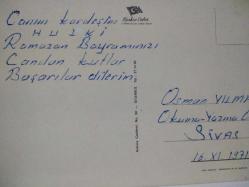 Canım kardeşim
HULKİ
Ramazan Bayramınızı
Candan kutlar
Başarılar dilerim
Osman YILM
Okuma-Yazma
SİVAS
16.XI.1971